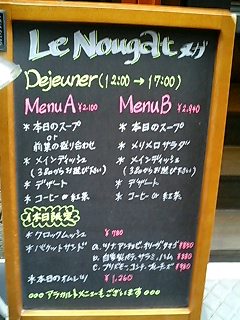 Le Nougat ヌガ
Dejeuner (12:00 → 17:00)
Menu A ¥2.100
* 本日のスープ
or
前菜の盛り合わせ
* メインディッシュ
(3品からお選び下さい)
* デザート
* コーヒー or 紅茶
Menu B ¥2.940
* 本日のスープ
* メリメロサラダ
* メインディッシュ
(3品からお選び下さい)
* デザート
* コーヒー or 紅茶
* クロックムッシュ ¥780
* バゲットサンド a. ツナ, アンチョビ, オリーブ, タマゴ ¥880
b. 自家製パテ, サラミ, ハム ¥880
c. ブリズモー, コンテ, ブルーチーズ
* 本日のオムレツ! ¥1,260
ooo アラカルトメニューもございます ooo